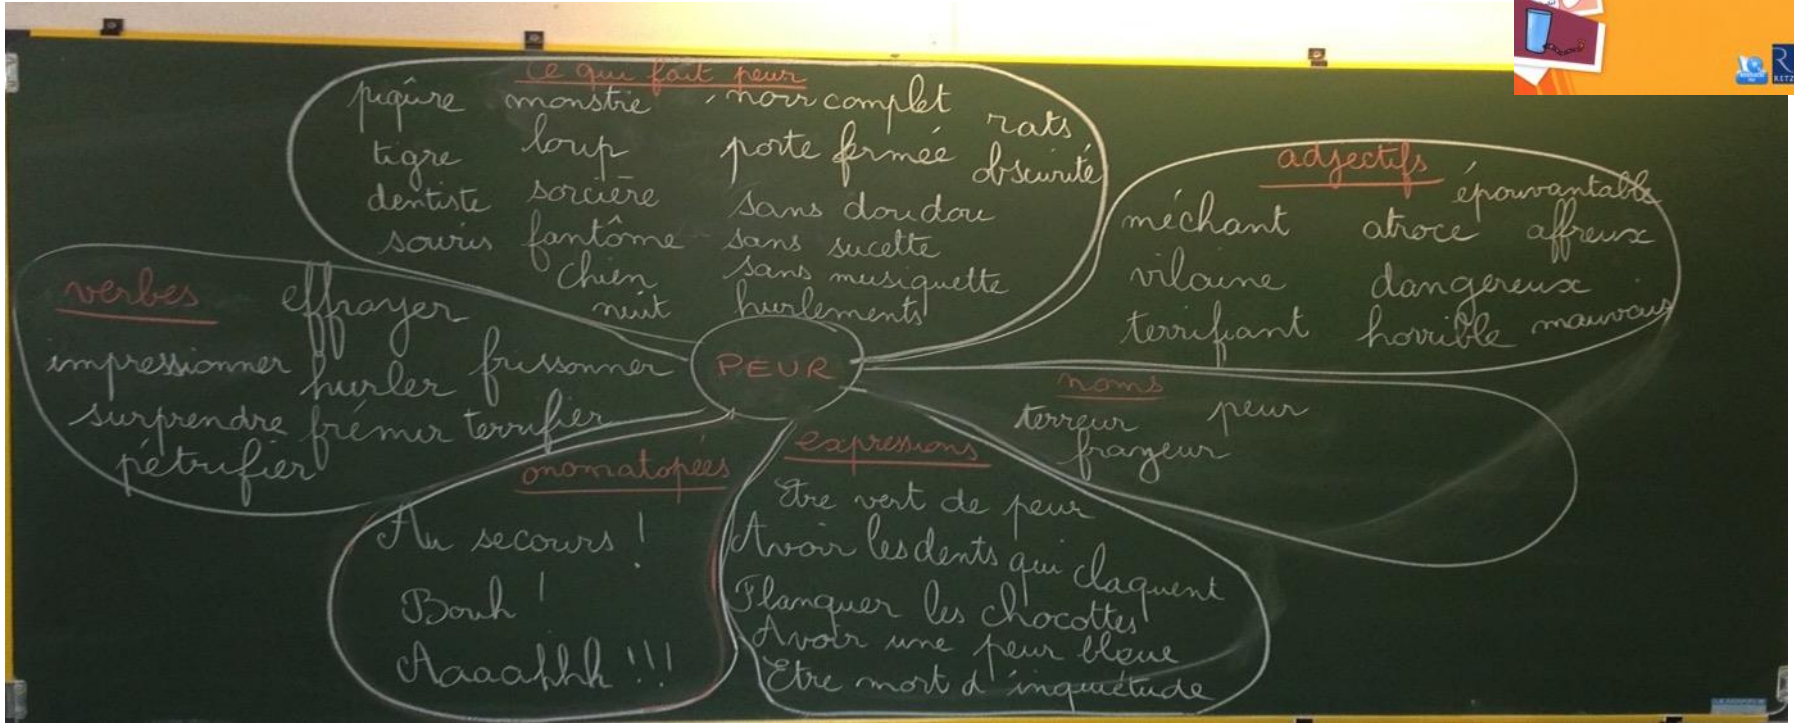 ce qui fait peur
piqûre monstre noir complet
rats
tigre loup porte fermée
obscurité
dentiste sorcière sans doudou
souris fantôme sans sucette
chien sans musiquette
nuit hurlements
adjectifs
épouvantable
méchant atroce affreux
vilaine dangereux
terrifiant horrible mauvais
verbes effrayer
impressionner hurler frissonner
surprendre frémir terrifier
pétrifier
PEUR
noms
terreur peur
frayeur
onomatopées
Au secours !
Bouh !
Aaaahhh !!!
expressions
Etre vert de peur
Avoir les dents qui claquent
Flanquer les chocottes
Avoir une peur bleue
Etre mort d'inquiétude
RETZ